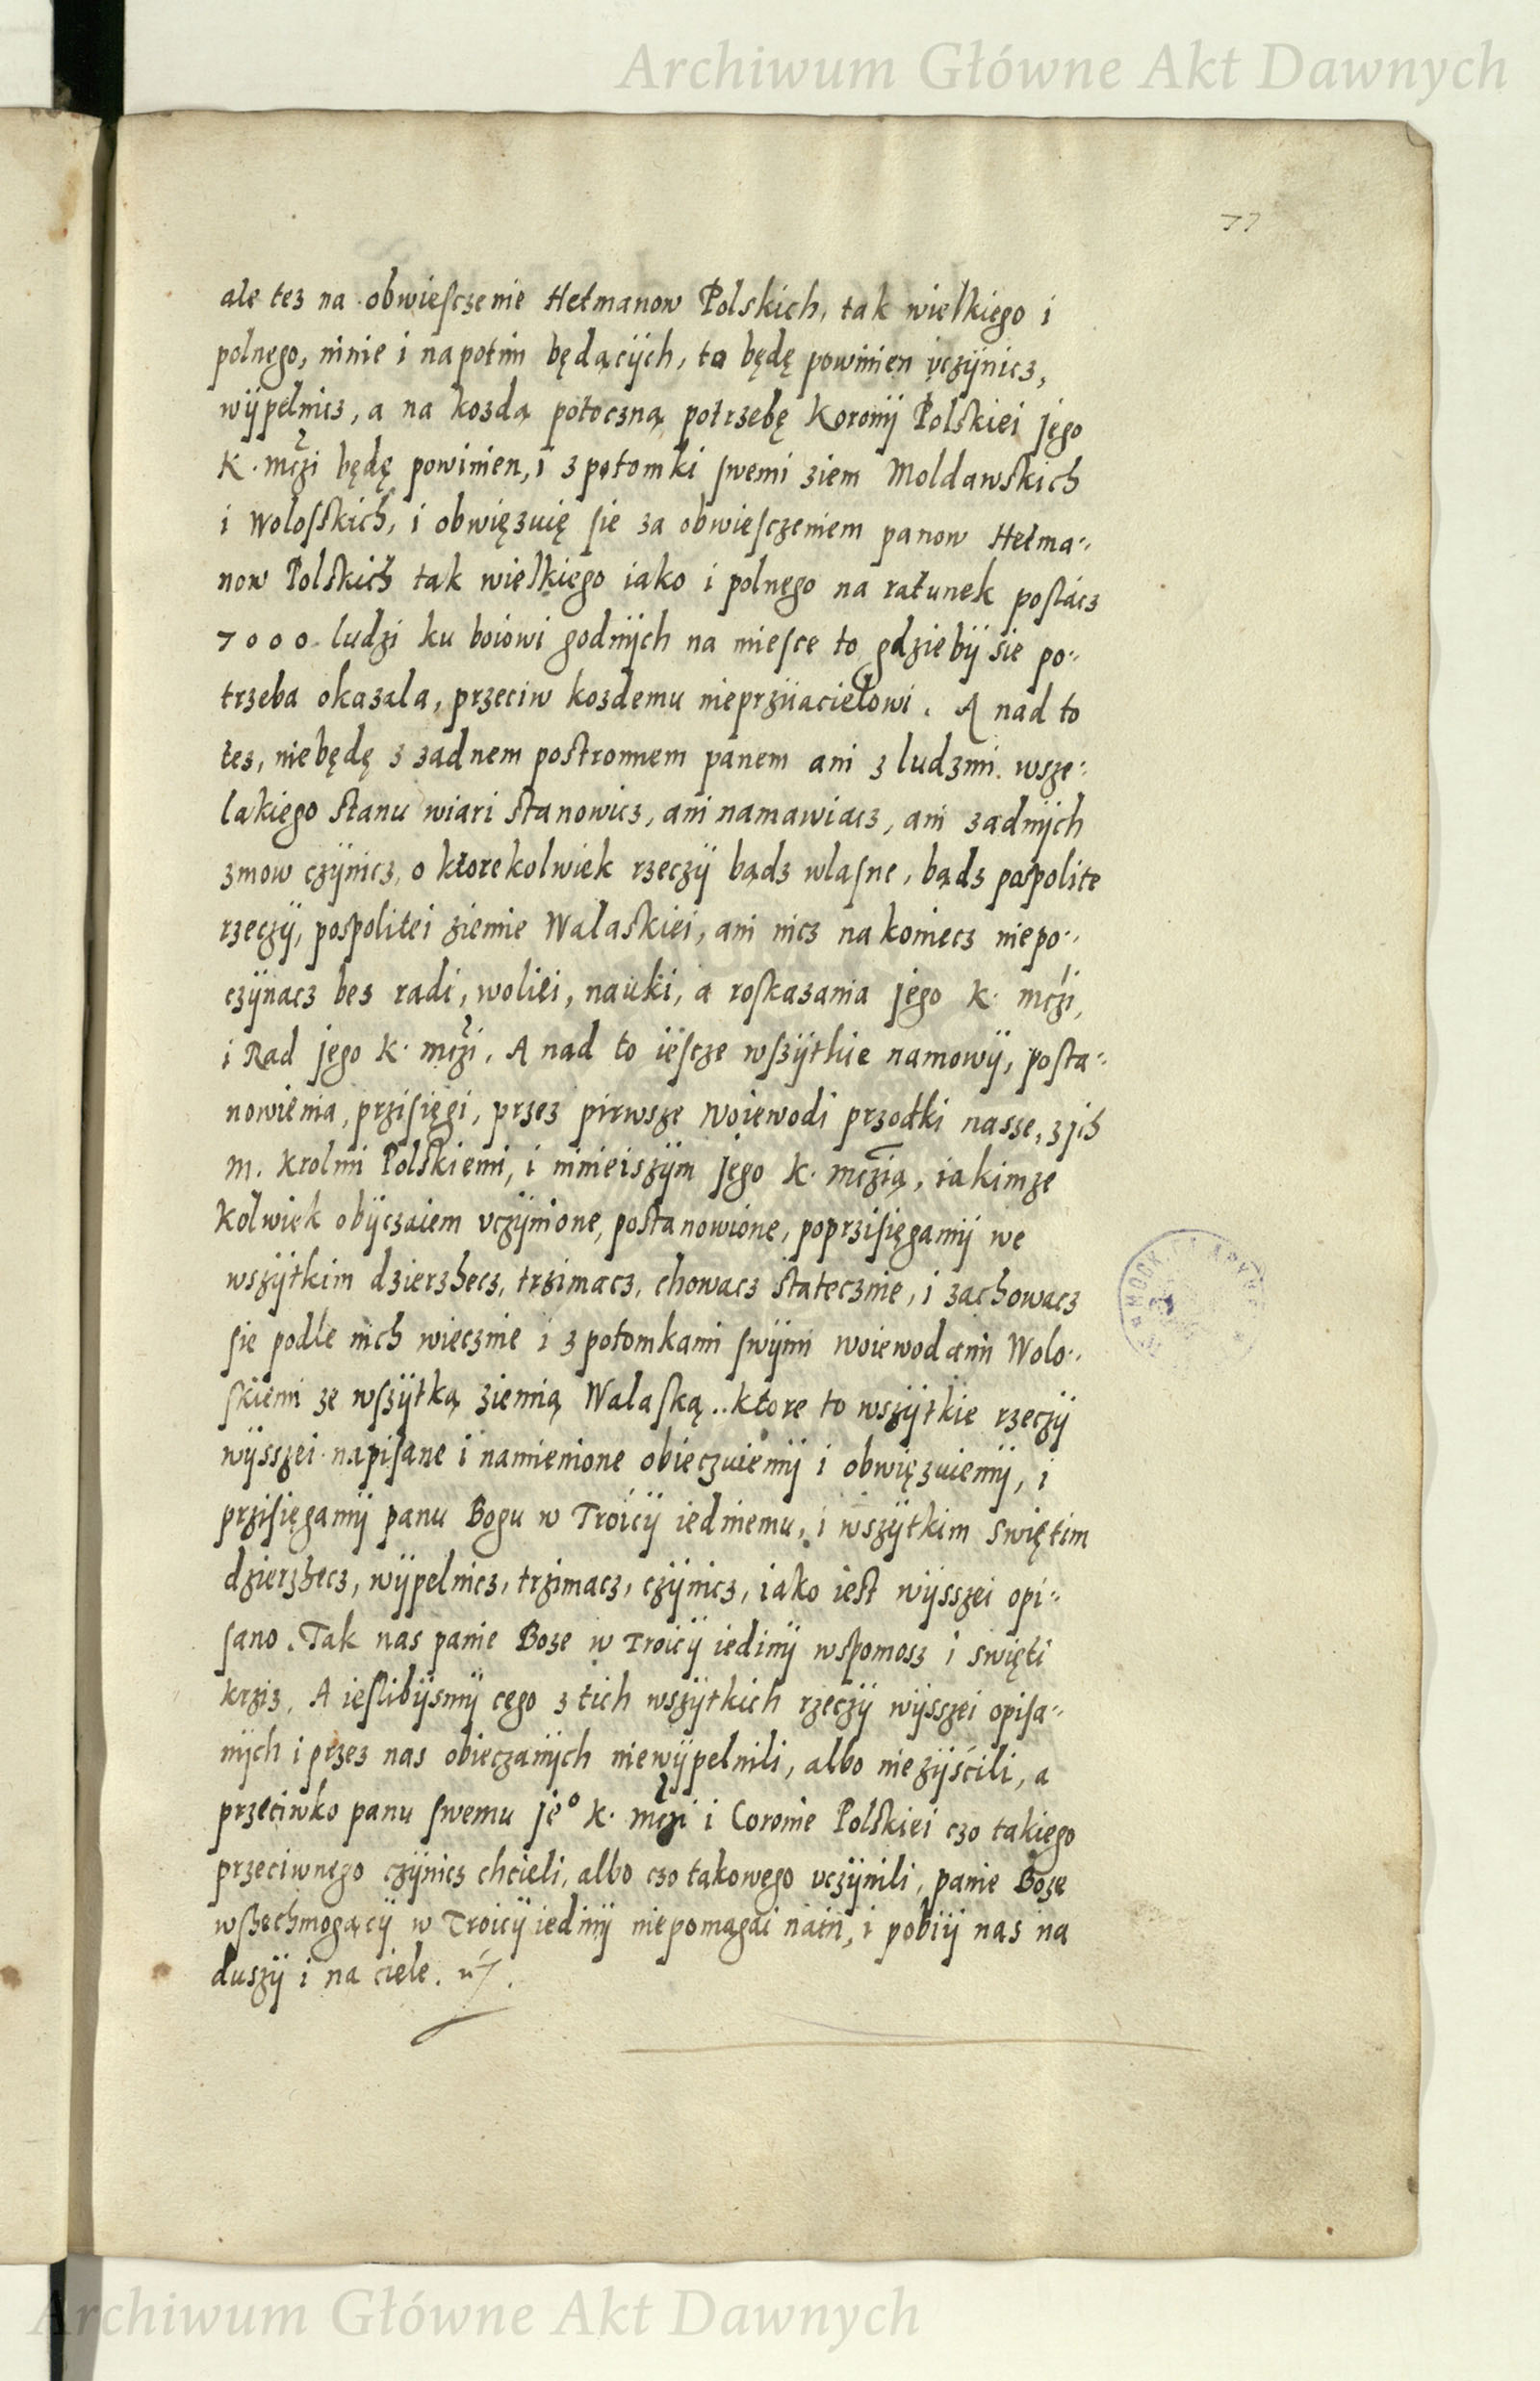 Archiwum Główne Akt Dawnych
77
ale tes na obwiesczenie Hetmanow Polskich, tak wielkiego i
polnego, ninie i napotim będącÿch, to będę powinien vczÿnicz,
wÿpelnicz, a na kozdą potoczną potrzebę Koronÿ Polskiei jego
K. mczi będę powinien, i z potomki swemi ziem Moldawskich
i Wolosskich, i obwięzuię sie za obwiesczeniem panow Hetma-
now Polskich tak wielkiego iako i polnego na ratunek poslacz
7000 ludzi ku boiowi godnÿch na miesce to gdziebÿ sie po-
trzeba okazala, przeciw kozdemu nieprziiacielowi. A nad to
tez, niebędę z zadnem postronnem panem ani z ludzmi wsze-
lakiego stanu wiari stanowicz, ani namawiacz, ani zadnÿch
zmow czÿnicz, o ktorekolwiek rzeczÿ bądz wlasne, bądz pospolite
rzeczÿ, pospolitei ziemie Walaskiei, ani nicz na koniecz niepo-
czÿnacz bes radi, woliei, nauki, a roskazania jego K. mczi,
i Rad jego K. mczi. A nad to iescze wszÿtkie namowÿ, posta-
nowienia, przisięgi, przez pirwsze Woiewodi przodki nasze, z jch
m. Krolmi Polskiemi, i ninieiszÿm jego K. mczią, iakimze
kolwiek obÿczaiem vczÿnione, postanowione, poprzisięgamÿ we
wszÿtkim dzierzhecz, trzimacz, chowacz statecznie, i zachowacz
sie podle nich wiecznie i z potomkami swÿmi woiewodami Wolo-
skiemi ze wszÿtką ziemią Walaską.. ktore to wszÿtkie rzeczÿ
wÿsszei napisane i namienione obieczuiemÿ i obwięzuiemÿ, i
przisięgamÿ panu Bogu w Troicÿ iedinemu, i wszÿtkim swiętim
dzierzhecz, wÿpelnicz, trzimacz, czÿnicz, iako iest wÿsszei opi-
sano. Tak nas panie Boze w Troicÿ iedinÿ wspomosz i swięti
krziz. A ieslibÿsmÿ cego z tich wszÿtkich rzeczÿ wÿsszei opisa-
nÿch i przez nas obieczanÿch niewÿpelnili, albo nieziÿścili, a
przeciwko panu swemu je° K. mczi i Coronie Polskiei czo takiego
przeciwnego czÿnicz chcieli, albo czo takowego vczÿnili, panie Boze
wszhechmogącÿ w Troicÿ iedinÿ niepomagai nam, i pobiÿ nas na
duszÿ i na ciele.
Archiwum Główne Akt Dawnych